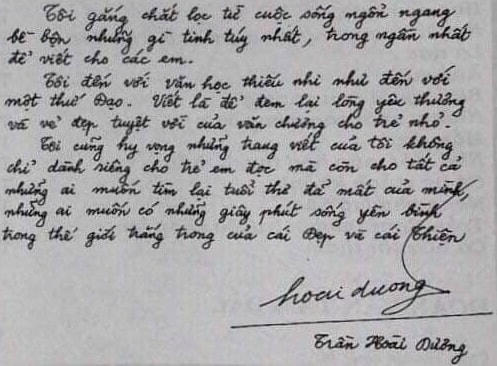 Tôi gắng chắt lọc từ cuộc sống ngổn ngang
bề bộn những gì tinh túy nhất, trong ngần nhất
để viết cho các em.
Tôi đến với văn học thiếu nhi như đến với
một thứ Đạo. Viết là để đem lại lòng yêu thương
và vẻ đẹp tuyệt vời của văn chương cho trẻ nhỏ.
Tôi cũng hy vọng những trang viết của tôi không
chỉ dành riêng cho trẻ em đọc mà còn cho tất cả
những ai muốn tìm lại tuổi thơ đã mất của mình,
những ai muốn có những giây phút sống yên bình
trong thế giới trắng trong của cái Đẹp và cái Thiện
hoai duong
Trần Hoài Dương